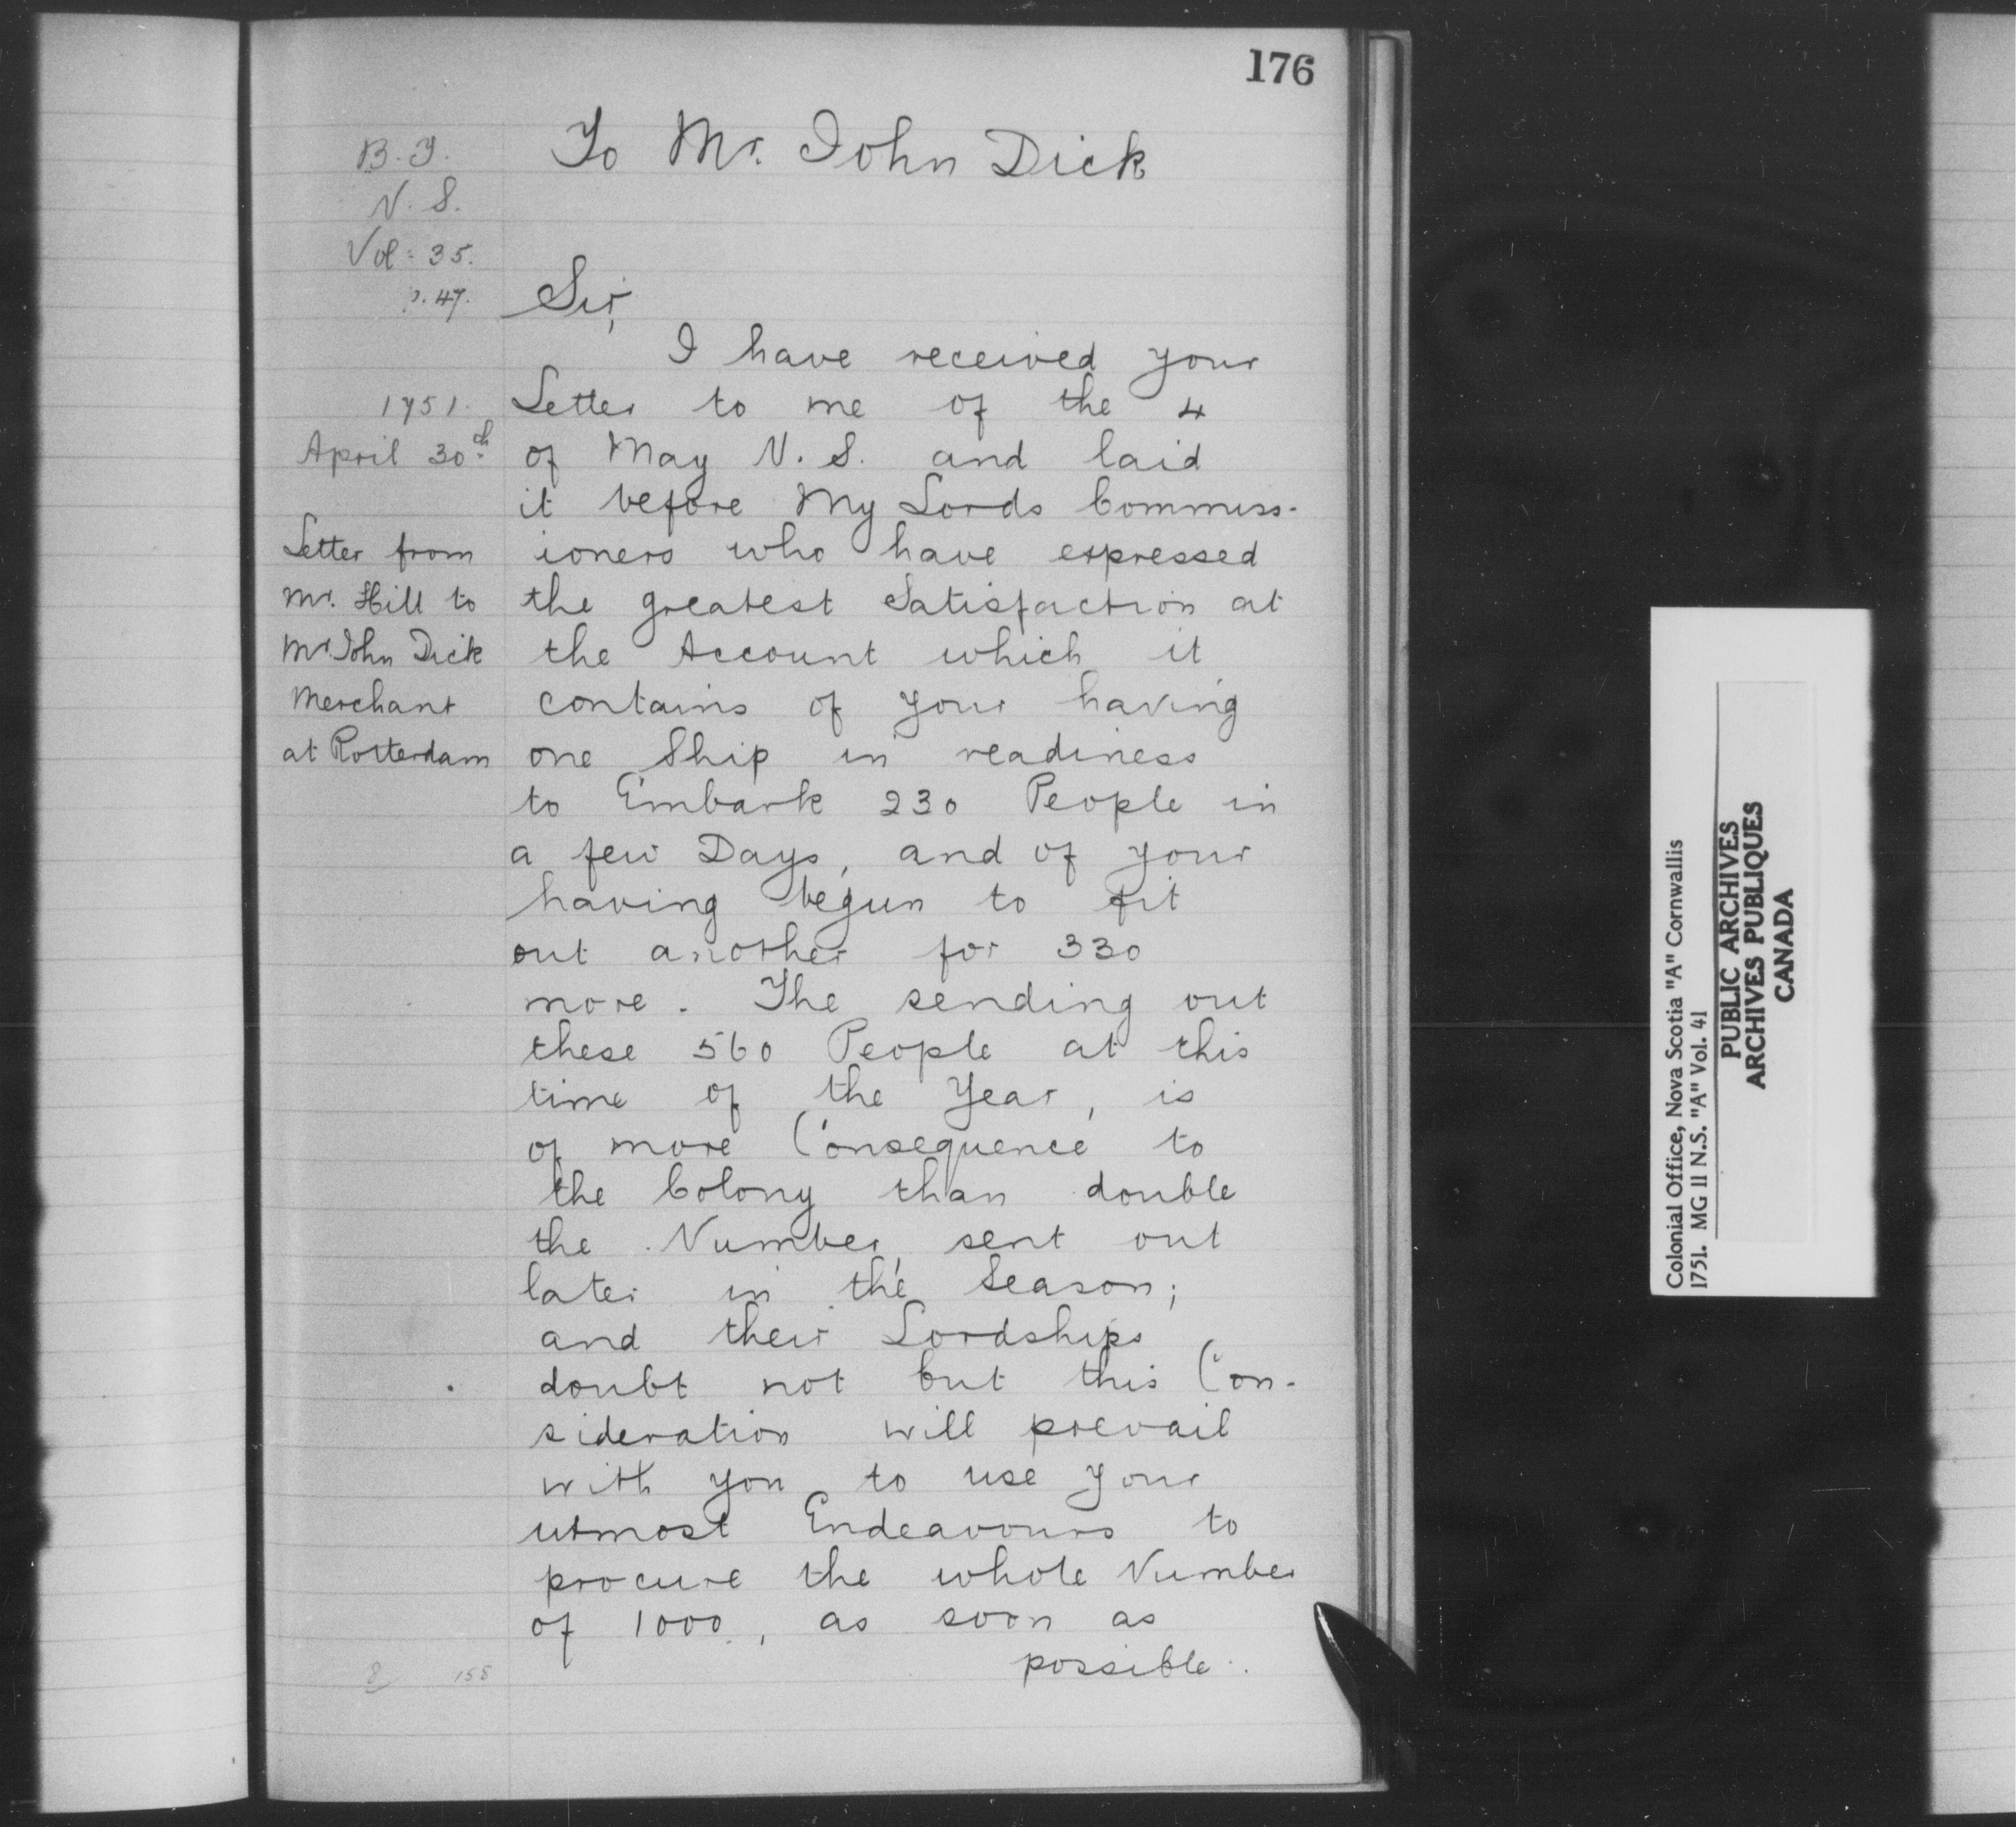 176
To Mr. John Dick
B. T.
N. S.
Vol: 35.
p. 47.
Sir,
I have received your
Letter to me of the 4
of May N. S. and laid
it before My Lords Commiss-
ioners who have expressed
the greatest Satisfaction at
the Account which it
contains of your having
one Ship in readiness
to Embark 230 People in
a few Days, and of your
having begun to fit
out another for 330
more. The sending out
these 560 People at this
time of the Year, is
of more Consequence to
the Colony than double
the Number, sent out
later in the Season;
and their Lordships
doubt not but this Con-
sideration will prevail
with you to use your
utmost Endeavours to
procure the whole Number
of 1000, as soon as
possible.
1751.
April 30th
Letter from
Mr. Hill to
Mr John Dick
Merchant
at Rotterdam
158
Colonial Office, Nova Scotia "A" Cornwallis
1751. MG 11 N.S. "A" Vol. 41
PUBLIC ARCHIVES
ARCHIVES PUBLIQUES
CANADA